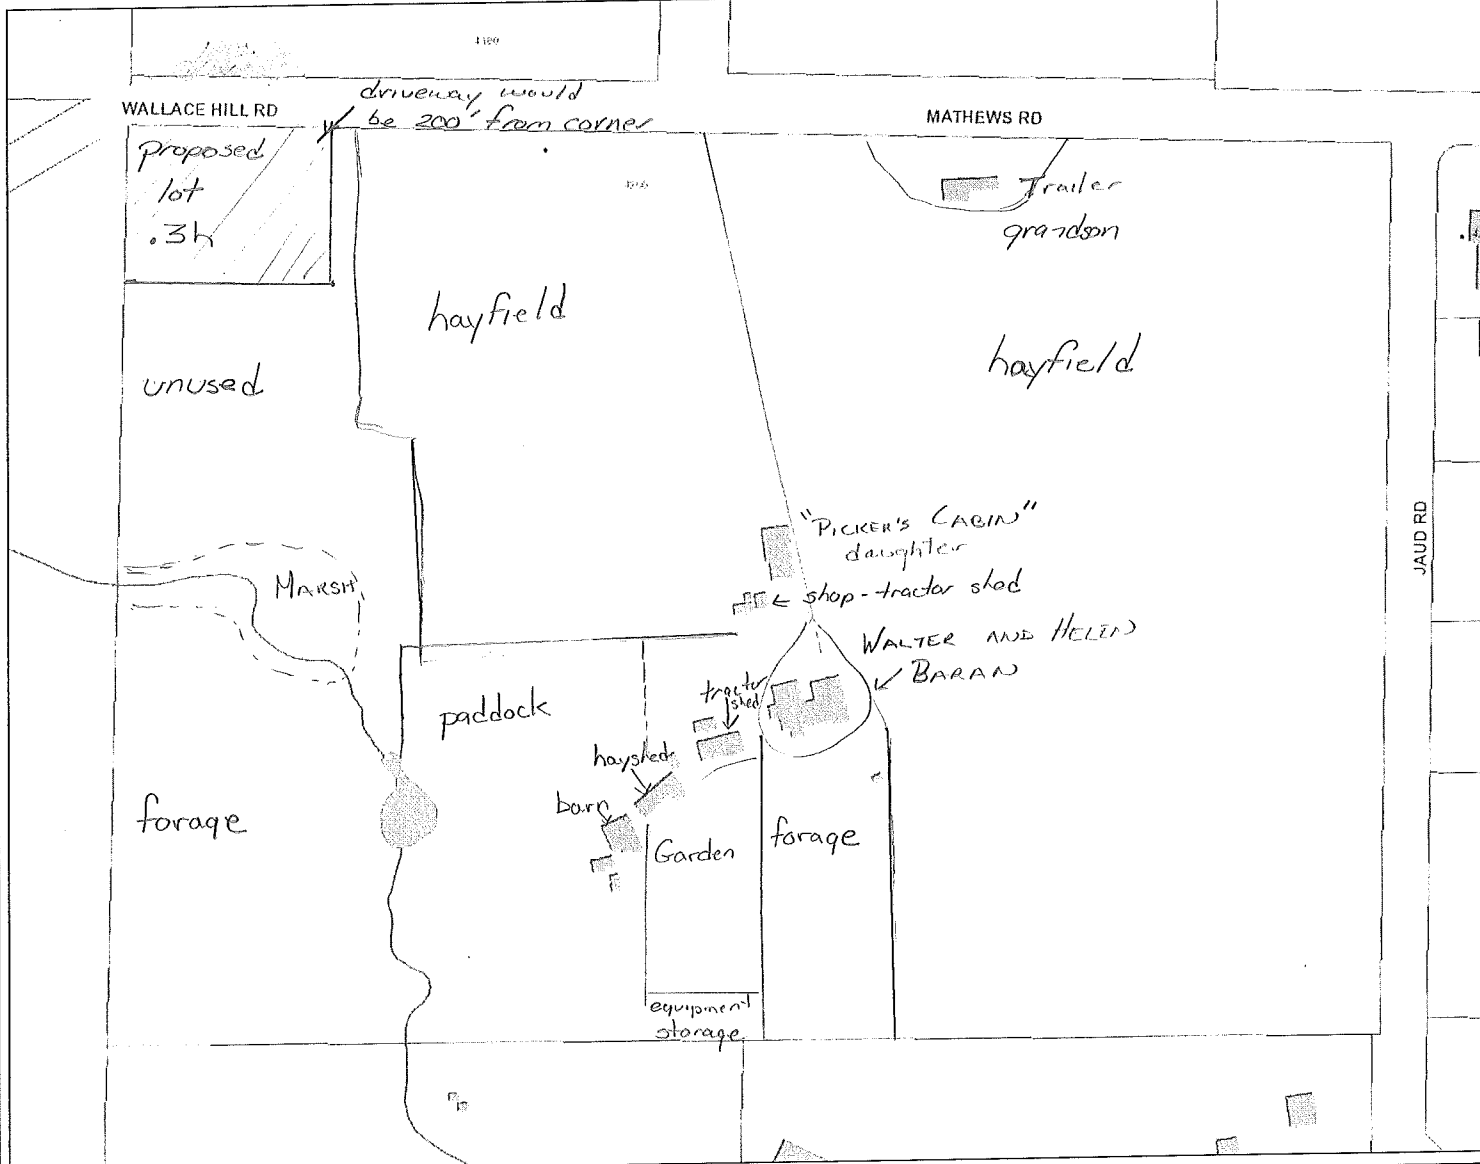 4180
WALLACE HILL RD
driveway would
be 200' from corner
MATHEWS RD
proposed
lot
.3h
Trailer
grandson
hayfield
hayfield
unused
"PICKER'S CABIN"
daughter
MARSH
← shop-tractor shed
JAUD RD
WALTER AND HELEN
BARAN
tractor
shed
paddock
hayshed
barn
forage
Garden
forage
equipment
storage